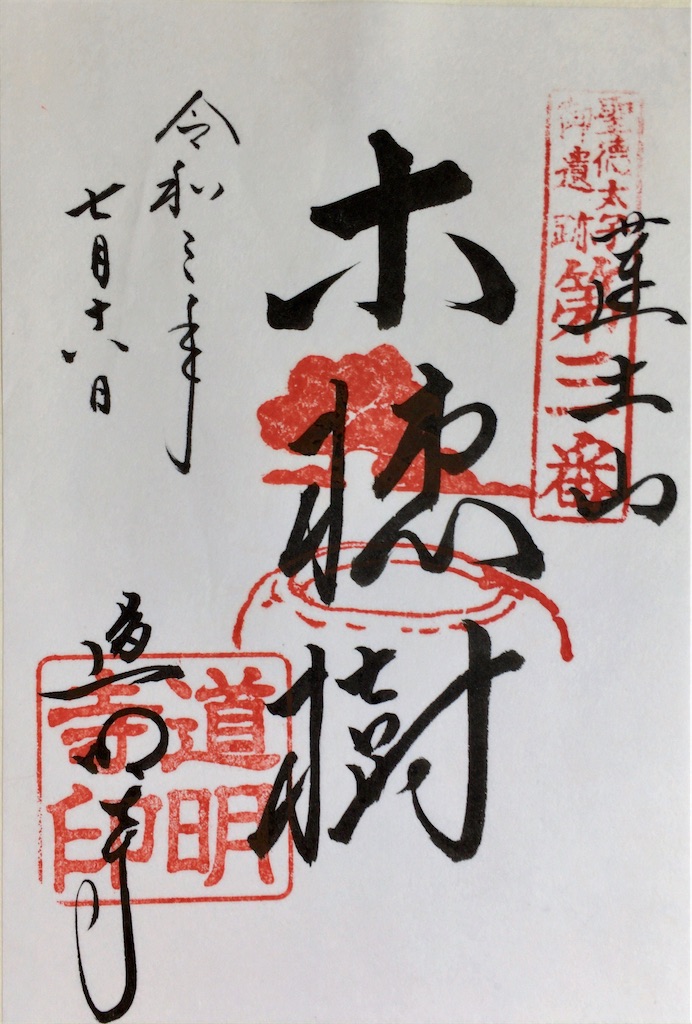 聖徳太子
御遺跡
第三番
蓮土山
木槵樹
令和三年
七月十六日
道明寺
道明
寺印